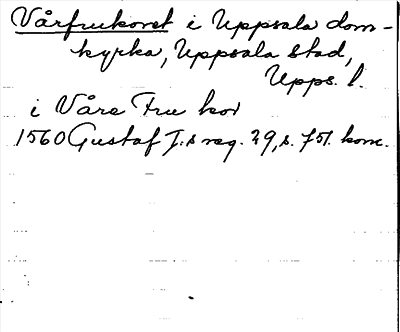 Vårfrukoret i Uppsala dom-
kyrka, Uppsala stad,
Upps. l.
i Våre Fru kor
1560 Gustaf I:s reg. 29, s. 751. konc.